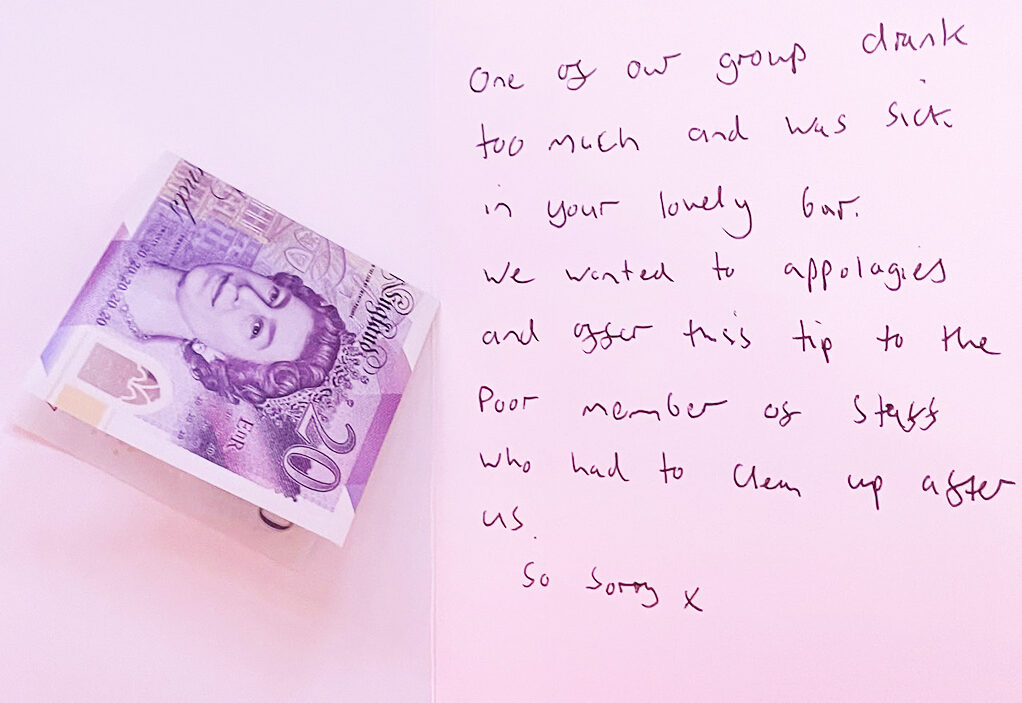 One of our group drank
too much and was sick
in your lovely bar.
We wanted to appolagies
and offer this tip to the
Poor member of staff
who had to clean up after
us.
So sorry x
20